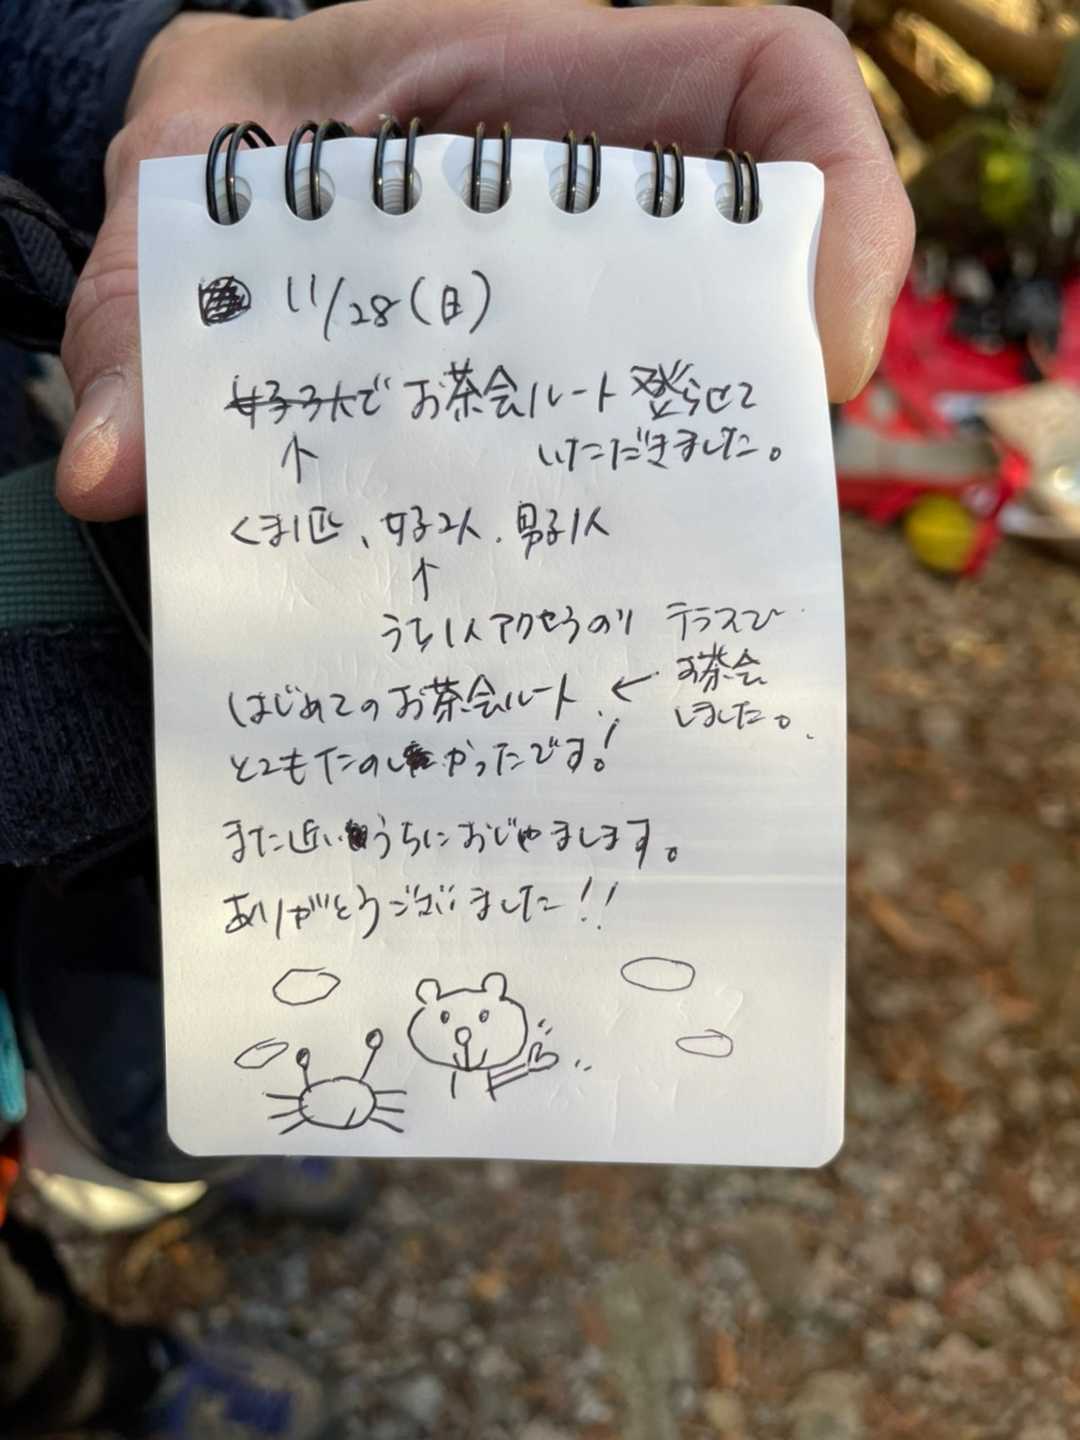 11/28(日)
女子3人で お茶会ルート 登らせて
いただきました。
↑
くま1匹、女子2人、男子1人
↑
うち1人アクセラのり
テラスで
お茶会
しました。
はじめてのお茶会ルート. ←
とてもたのしかったです!
また近いうちにおじゃまします。
ありがとうございました!!